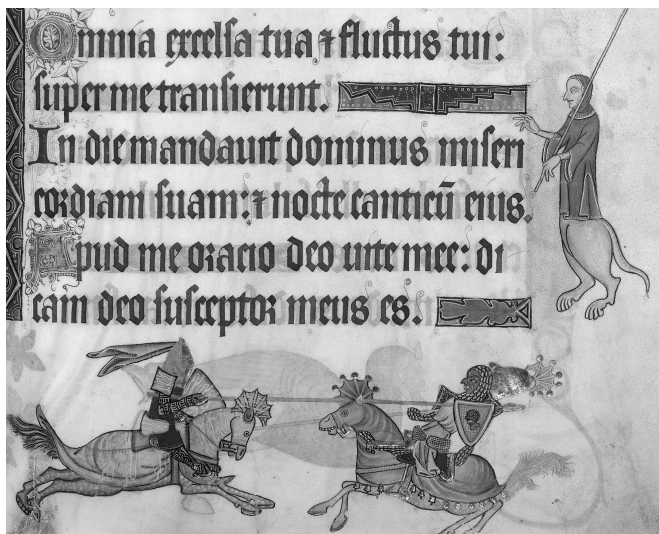 Omnia excelsa tua ⁊ fluctus tui:
super me transierunt.
In die mandauit dominus miseri
cordiam suam: ⁊ nocte canticū eius.
Apud me oracio deo uite mee: di
cam deo susceptor meus es.